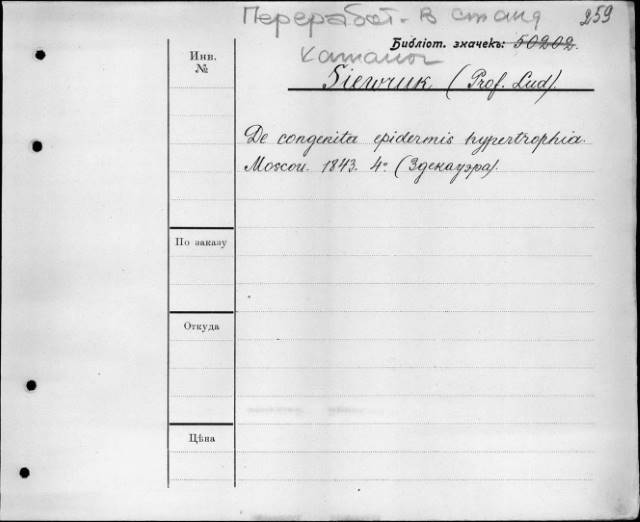 Переработ. в станд 259
каталог
Библіот. значекъ: 50202.
Инв.
№
Siewruk (Prof. Lud).
De congenita epidermis hypertrophia.
Moscou. 1843. 4° (Здекауэра).
По заказу
Откуда
Цѣна